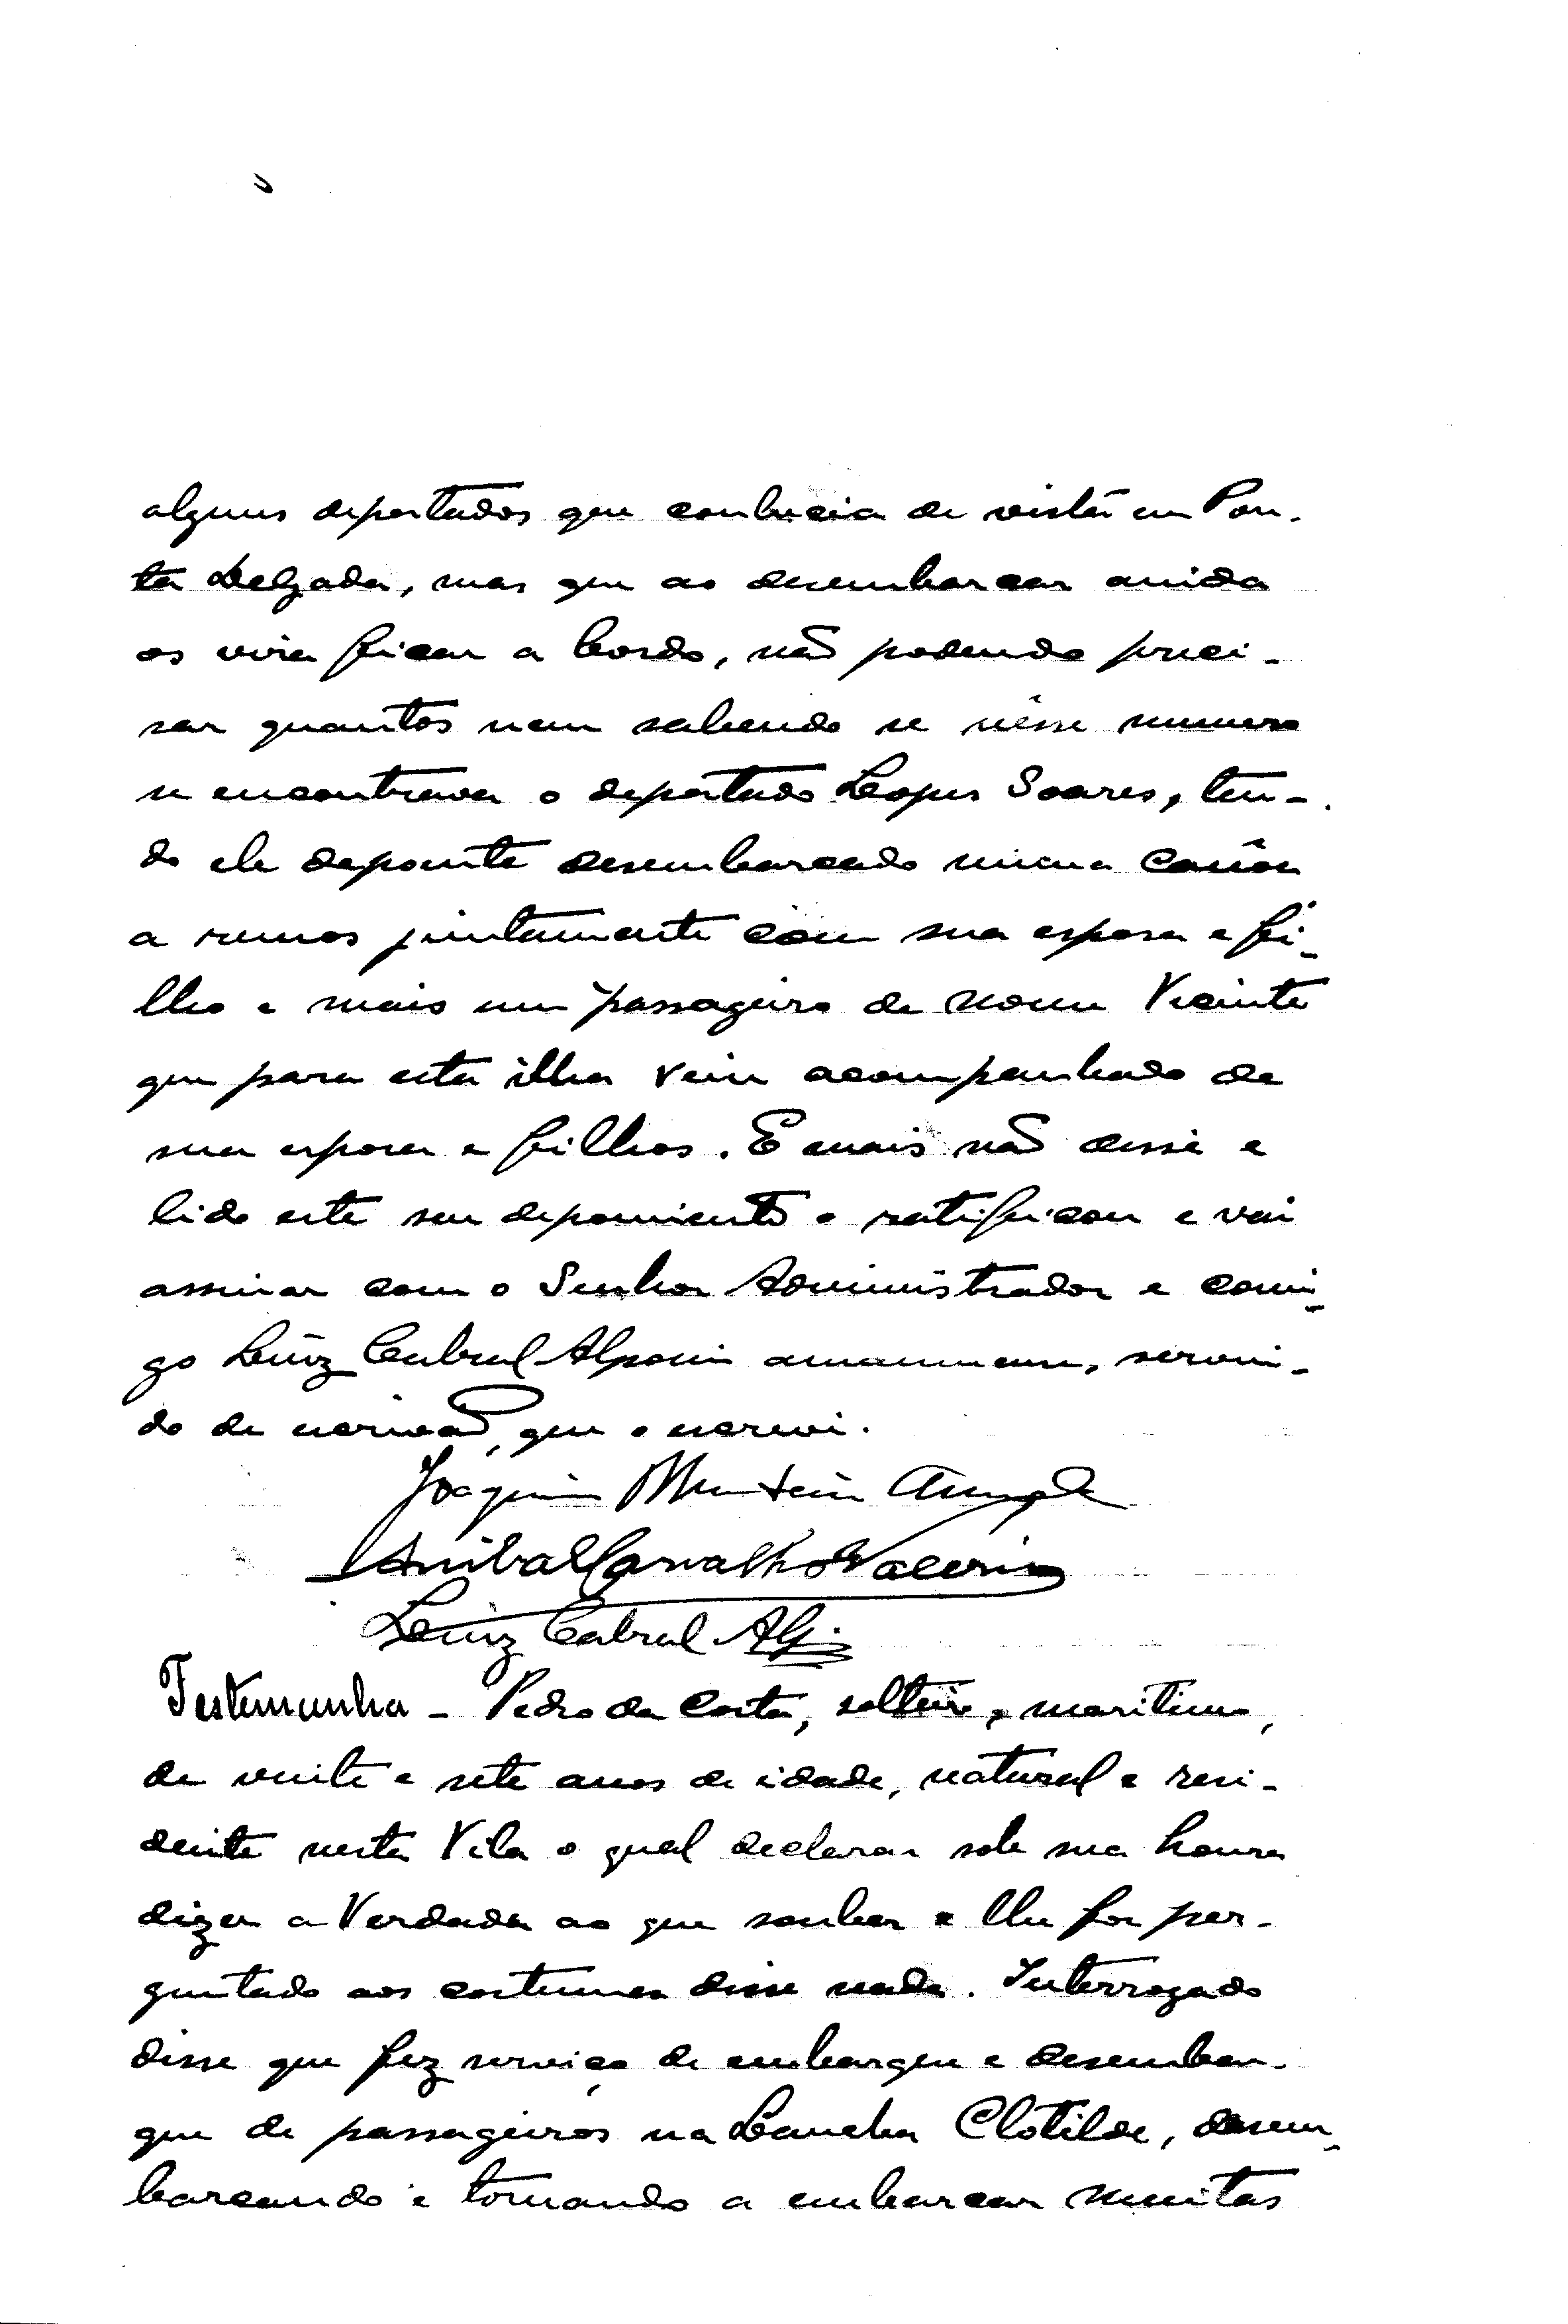 alguns deportados que conhecia de vista em Pon-
ta Delgada, mas que ao desembarcar ainda
os vira ficar a bordo, não podendo preci-
sar quantos nem sabendo se nêsse numero
se encontrava o deportado Lopes Soares, ten-
do ele depoente desembarcado numa canôa
a remos juntamente com sua esposa e fi-
lho e mais um passageiro de nome Vicente
que para esta ilha veiu acompanhado de
sua esposa e filhos. E mais não disse e
lido este seu depoimento o ratificou e vai
assinar com o Senhor Administrador e comi-
go Luiz Cabral Alpoim amanuense, servin-
do de escrivão, que o escrevi.
Joaquim
Anibal Carvalho Valerio
Luiz Cabral
Testemunha - Pedro da Costa, solteiro, maritimo,
de vinte e sete anos de idade, natural e resi-
dente nesta Vila o qual declarou sob sua honra
dizer a Verdade ao que souber e lhe for per-
guntado aos costumes disse nada. Interrogado
disse que fez serviço de embarque e desembar-
que de passageiros na Lancha Clotilde, desem-
barcando e tornando a embarcar muitas